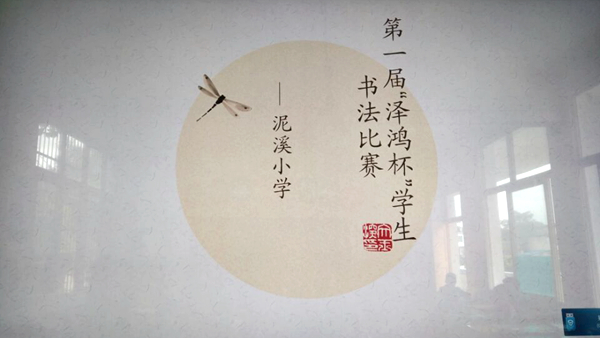 第一届“泽鸿杯”学生
书法比赛
—泥溪小学